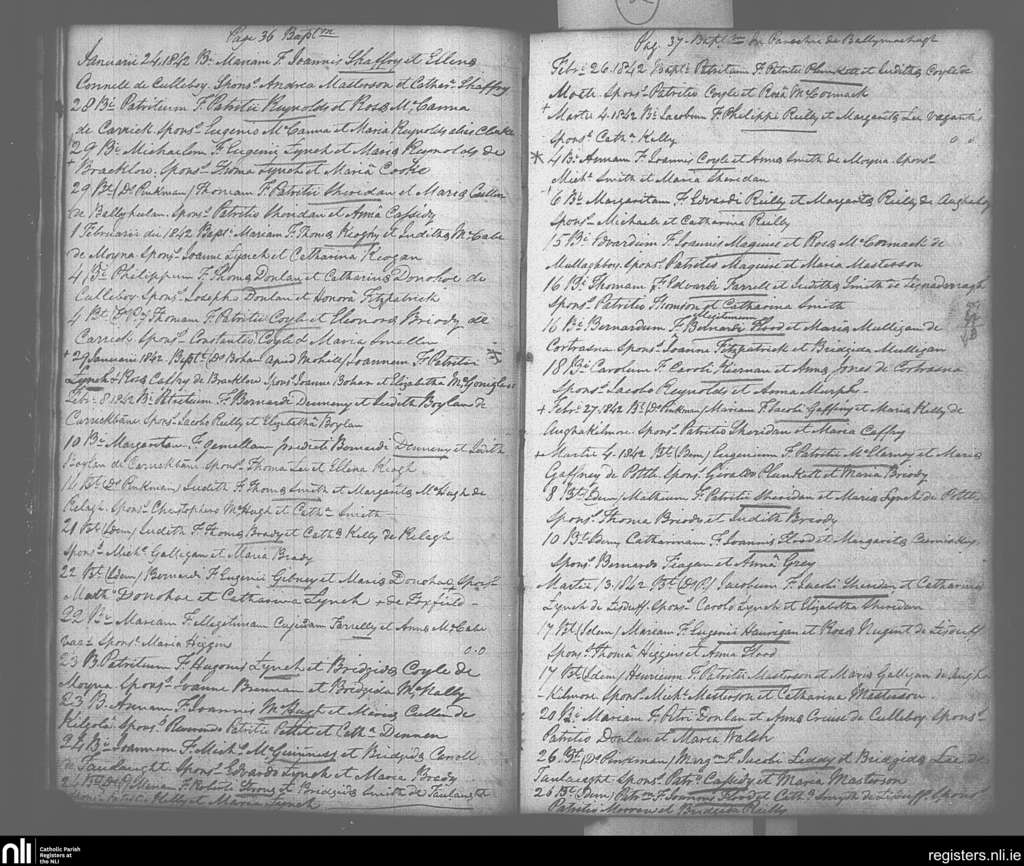 Page 36 Baptm
Januarii 24. 1842 Bt Mariam F. Joannis Shaffry et Ellena
Connell de Culleboy. Spons. Andrea Masterson et Cathern Shaffry
28 Bt Patritium F. Patritii Reynolds et Rosa McCanna
de Carrick Spons. Eugenio McCanna et Maria Reynolds alias Clarke
29 Bt Michaelem F. Eugenii Lynch et Maria Reynolds de
Bracklow. Spons. Thoma Lynch et Maria Cooke
29 Bt (Ds Pinkman) Thomam F. Patritii Sheridan et Maria Cullen
de Ballyheelan. Spons. Patritio Sheridan et Anna Cassidy
1 Februarii die 1842 Bapt. Mariam F. Thoma Keogan et Juditha McCabe
de Moyna Spons. Joanne Lynch et Catharina Keogan
4 Bt Philippum F. Thoma Donlan et Catharina Donohoe de
Culleboy. Spons. Josepho Donlan et Honora Fitzpatrick
4 Bt Thomam F. Patritii Coyle et Eleonora Briody de
Carrick Spons. Constantio Coyle et Maria Smallen
+ 29 Januarii 1842. Bapt. (Ds Bohan apud Mohill) Joannem F. Patritii
Lynch & Rosa Caffry de Bracklow Spons. Joanne Bohan et Elizabetha
Febr. 8 1842 Bt Patritium F. Bernardi Denneny et Judith Boylan de
Carrickbane Spons. Jacobo Reilly et Elizabetha Boylan
10 Bt Margaritam F. gemellam Bernardi Denneny et Judith
Boylan de Carrickbane Spons. Thoma Lee et Ellena Keogh
Bt (Ds Pinkman) Judith F. Thoma Smith et Margarita McHugh de
Relagh. Spons. Christophero McHugh et Cath. Smith
21 Bt (Idem) Judith F. Thoma Brady et Cath. Kelly de Relagh
Spons. Mich. Gallegan et Maria Brady
22 Bt (Idem) Bernardi F. Eugenii Gibney et Maria Donohoe Spons.
Math. Donohoe et Catharina Lynch + de Foxfield
22 Bt Mariam F. illegitimam Farrelly et Anna McCabe
vaga Spons. Maria Higgins 0.0
23 B. Patritium F. Hugonis Lynch et Bridgida Coyle de
Moyna Spons. Joanne Brennan et Bridgida McNally
23 B. Annam F. Joannis et Maria Cullen de
Spons. Reverendo Patritio Pettit et Cath. Dennen
24 Bt Joannem F. Mich. McGuinness et Bridgida Carroll
de Taulaught Spons. Edvardo Lynch et Maria Brody
F. Roberti Strong et Bridgida Smith de Taulaught
Kelly et Maria Lynch
Pag. 37 Baptm in Parochia de Ballymachugh
Febr. 26 1842 Bapt. Patritium F. Patritii Plunkett et Juditha Coyle de
Mostle Spons. Patritio Coyle et Rosa McCormack
+ Martii 4. 1842 Bt Jacobum F. Philippi Reilly et Margarita Lee vagantes
Spons. Cath. Kelly 0 0
* 4 Bt Annam F. Joannis Coyle et Anna Smith de Moyna Spons.
Mich. Smith et Maria Sheridan
6 Bt Margaritam F. Edvardi Reilly et Margarita Reilly de
Spons. Michaele et Catharina Reilly
15 Bt Edvardum F. Joannis Maguire et Rosa McCormack de
Mullaghboy. Spons. Patritio Maguire et Maria Masterson
16 Bt Thomam F. Edvardi Farrell et Juditha Smith de Lisnadarragh
Spons. Patritio et Catharina Smith
illegitimum
16 Bt Bernardum F. Bernardi Flood et Maria Mulligan de
Cortrasna Spons. Joanne Fitzpatrick et Bridgida Mulligan
18 Bt Carolum F. Caroli Kiernan et Anna Jones de Cortrasna
Spons. Jacobo Reynolds et Anna Murphy
+ Febr. 27. 1842 Bt (Ds Pinkman) Mariam F. Jacobi Gaffney et Maria Kelly de
Aughakilmore. Spons. Patritio Sheridan et Maria Caffry
+ Martii 4. 1842 Bt (Idem) Eugenium F. Patritii McElerney et Maria
Gaffney de Pottle. Spons. Geraldo Plunkett et Maria Briody
8 Bt (Idem) Mathium F. Patritii Sheridan et Maria Lynch de Pottle
Spons. Thoma Briody et Judith Briody
10 Bt (Idem) Catharinam F. Joannis Flood et Margarita
Spons. Bernardo Fiagan et Anna Grey
Martii 13. 1842 Bt (Ds PJ) Jacobum F. Jacobi Sheridan et Catharina
Lynch de Lisduff Spons. Carolo Lynch et Elizabetha Sheridan
17 Bt (Idem) Mariam F. Eugenii Hauregan et Rosa Nugent de Lisduff
Spons. Thoma Higgins et Anna Flood
17 Bt (Idem) Henricum F. Patritii Masterson et Maria Gallegan de Augha
-kilmore Spons. Mich. Masterson et Catharina Masterson
20 Bt Mariam F. Petri Donlan et Anna de Culleboy Spons.
Patritio Donlan et Maria Walsh
26 Bt (Ds Pinkman) Marg. F. Jacobi Leddy et Bridgida Lee de
Taulaught Spons. Pat. Cassidy et Maria Masterson
26 Bt (Idem) Patm. F. Joannis Flood et Cath. Smyth de Lisduff Spons.
Patritio et Bridgida Reilly
nli
Catholic Parish
Registers at
the NLI
registers.nli.ie